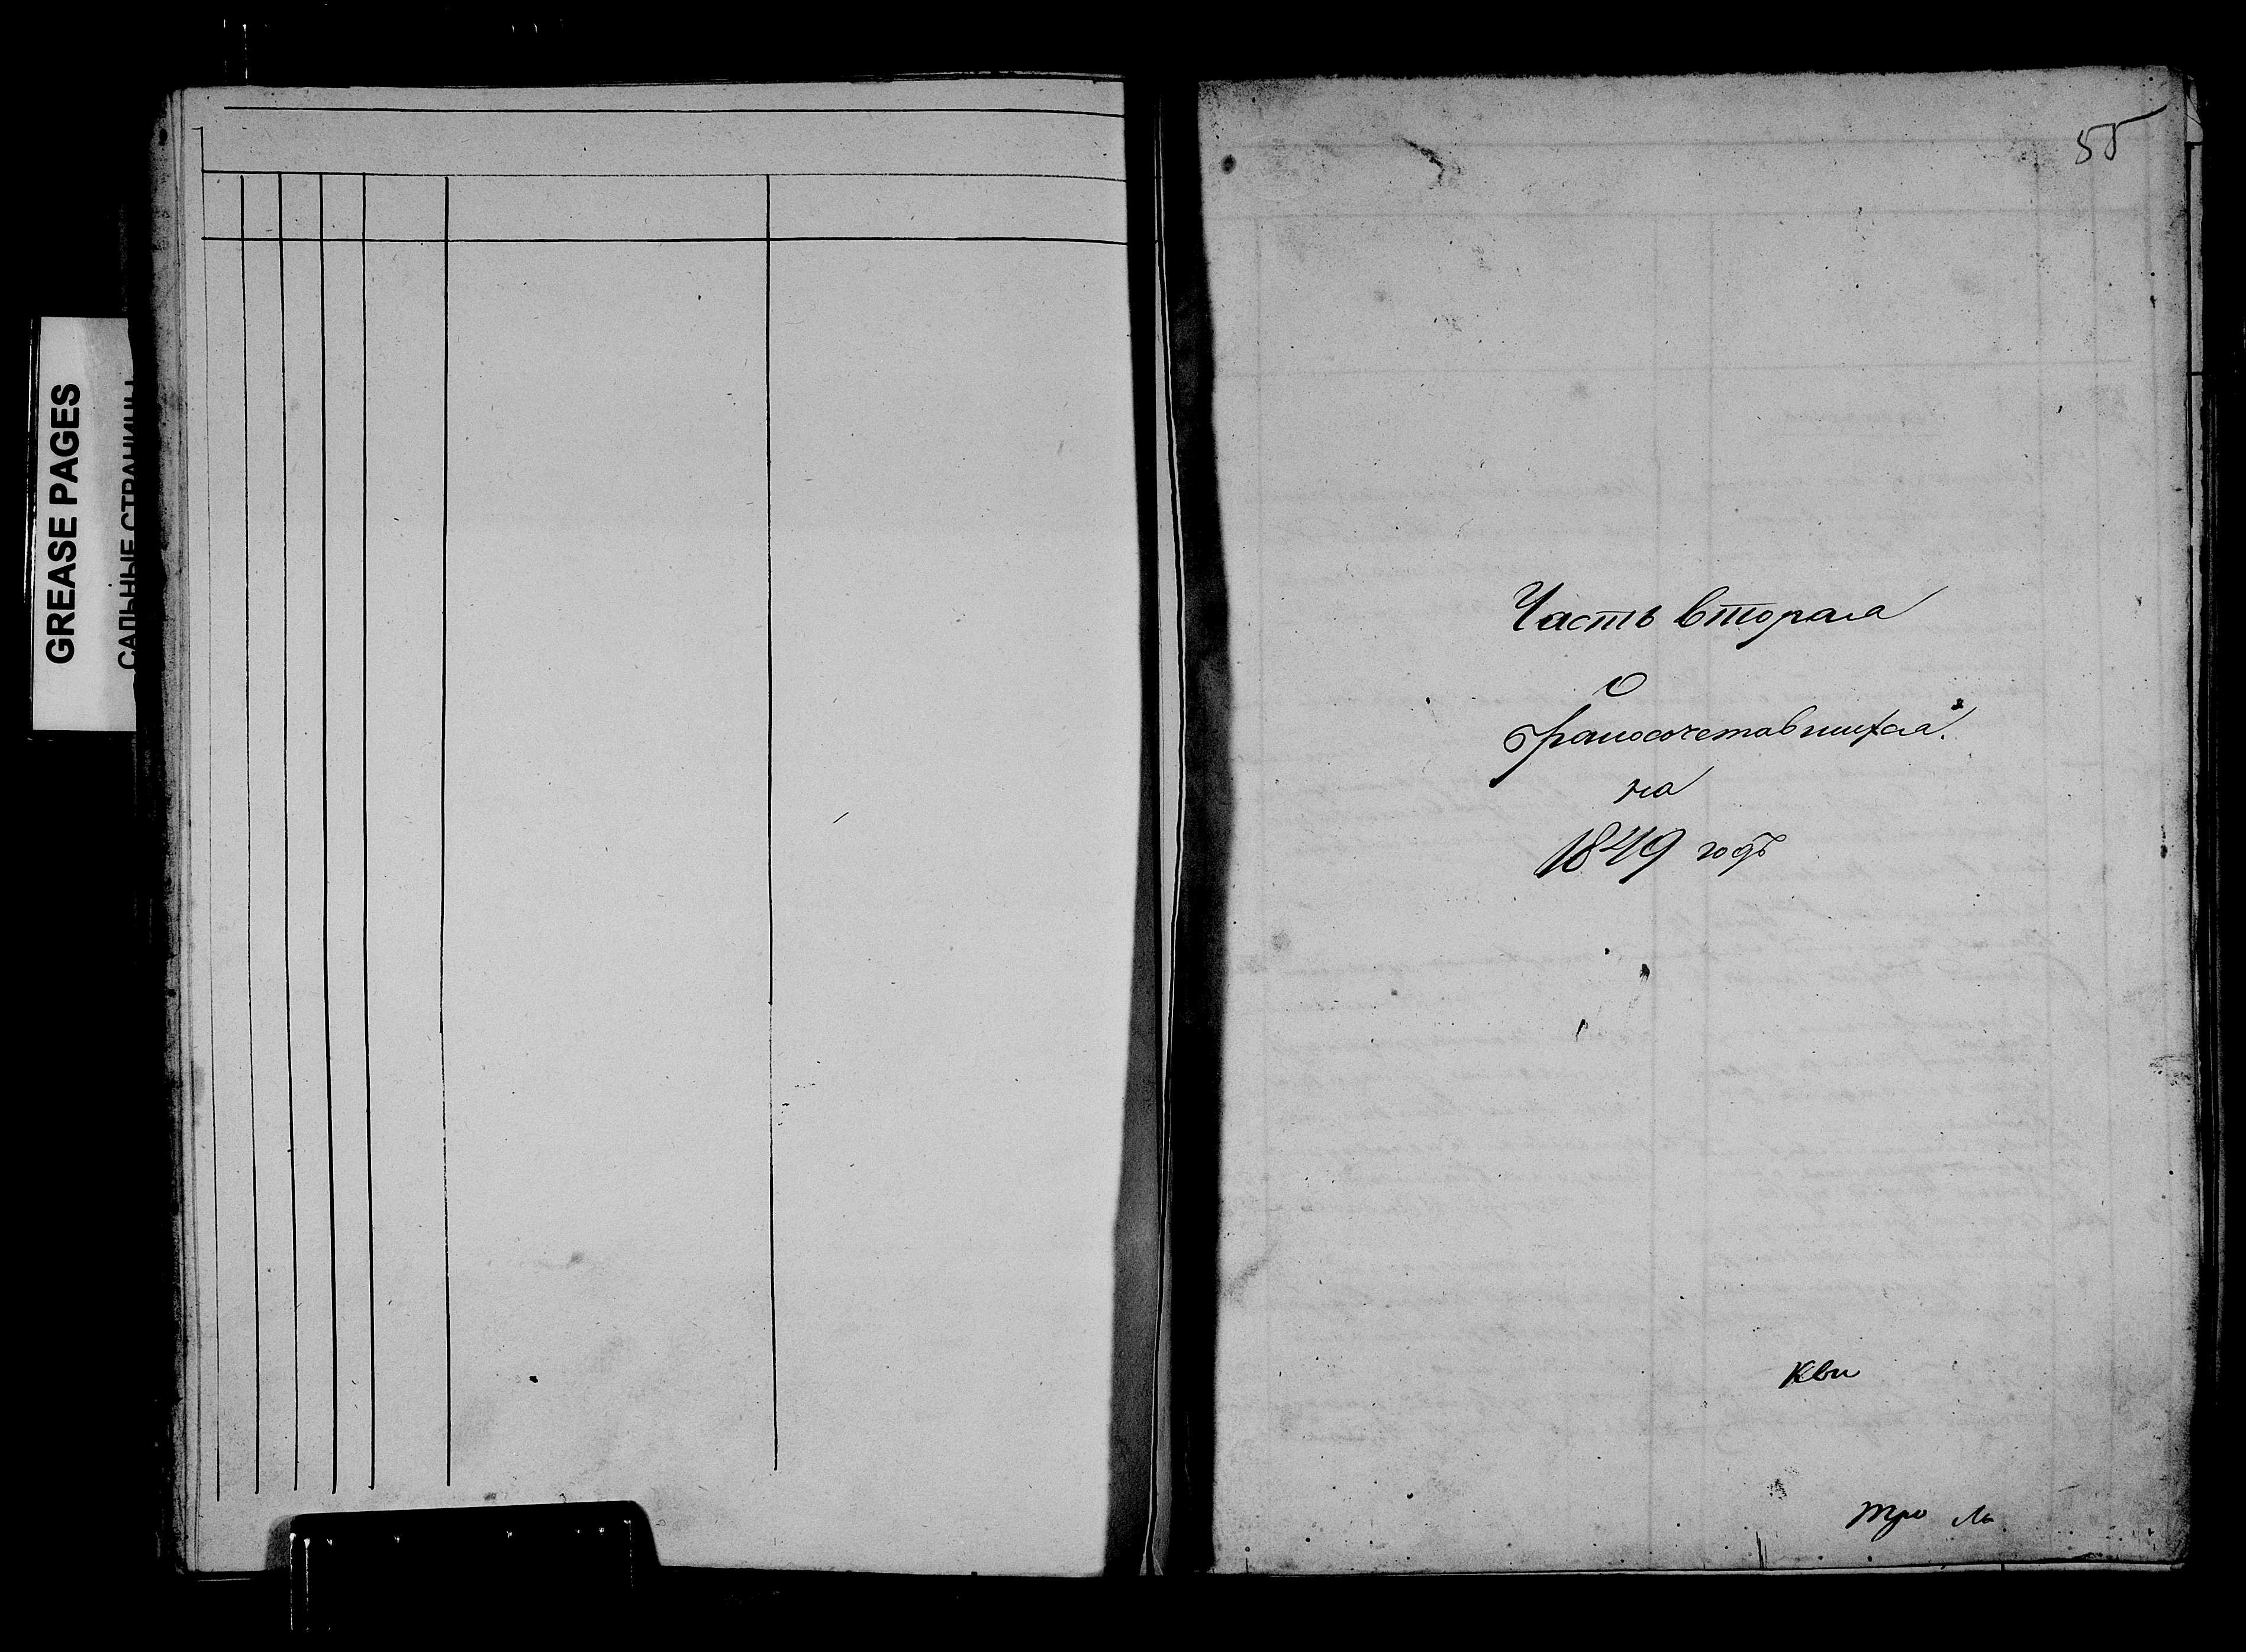 GREASE PAGES
САЛЬНЫЕ СТРАНИЦЫ
55
Часть вторая
О
бракосочетавшихся.
на
1849 годъ
Кви
тро ль